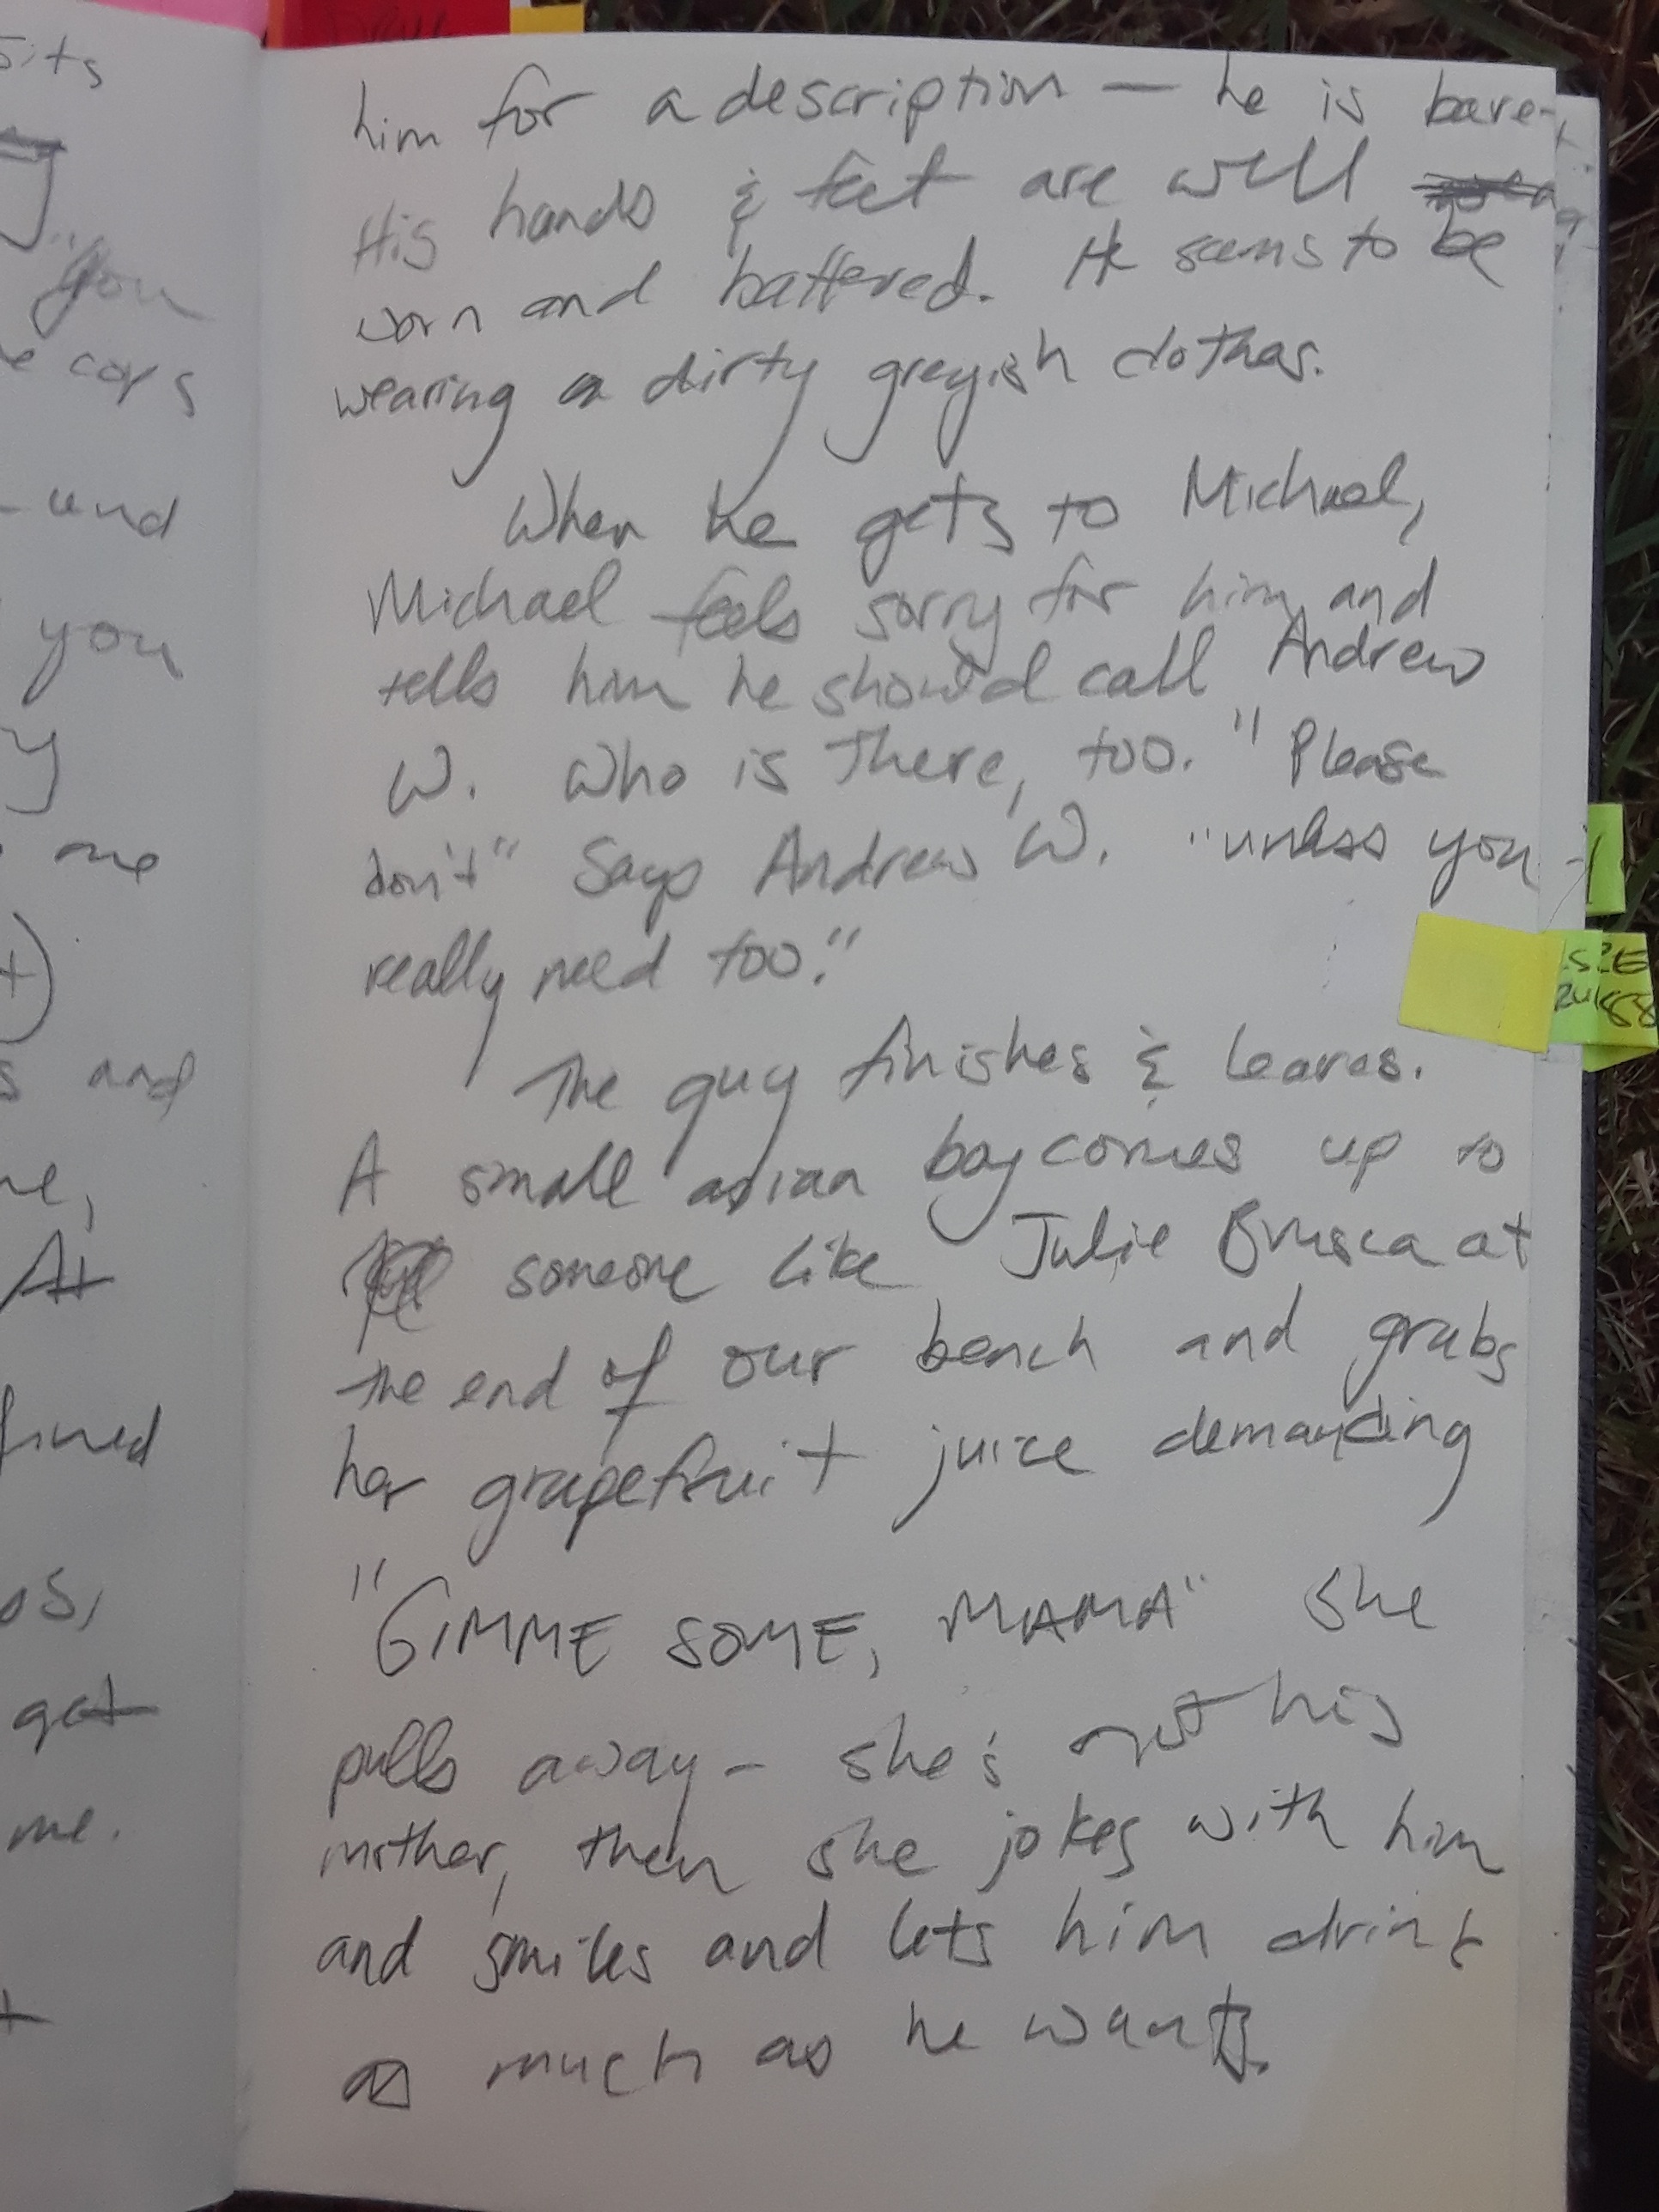 sits
you
cops
und
you
y
me
and
At
fined
get
me.
him for a description — he is bare-
His hands & feet are well
worn and battered. He seems to be
wearing a dirty greyish clothes.
When he gets to Michael,
Michael feels sorry for him and
tells him he should call Andrew
W. who is there, too. "Please
don't" says Andrew W. "unless you
really need too."
The guy finishes & leaves.
A small asian boy comes up to
someone like Julie Brusca at
the end of our bench and grabs
her grapefruit juice demanding
"GIMME SOME, MAMA" she
pulls away - she's not his
mother, then she jokes with him
and smiles and lets him drink
as much as he wants.